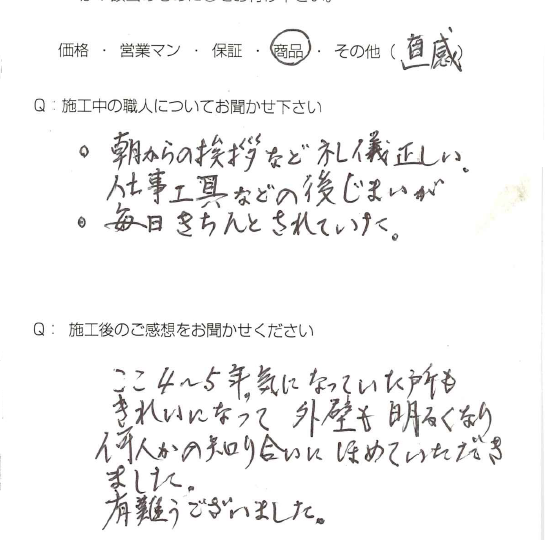 価格 ・ 営業マン ・ 保証 ・ 商品 ・ その他（ 直感 ）
Q：施工中の職人についてお聞かせ下さい
○ 朝からの挨拶など礼儀正しい。
仕事工具などの後じまいが
○ 毎日きちんとされていた。
Q： 施工後のご感想をお聞かせください
ここ4～5年、気になっていた所も
きれいになって 外壁も明るくなり
何人かの知り合いにほめていただき
ました。
有難うございました。